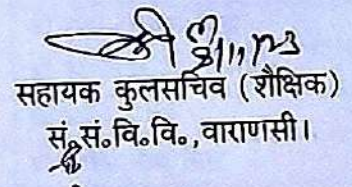 सहायक कुलसचिव (शैक्षिक)
सं॰सं॰वि॰वि॰,वाराणसी।